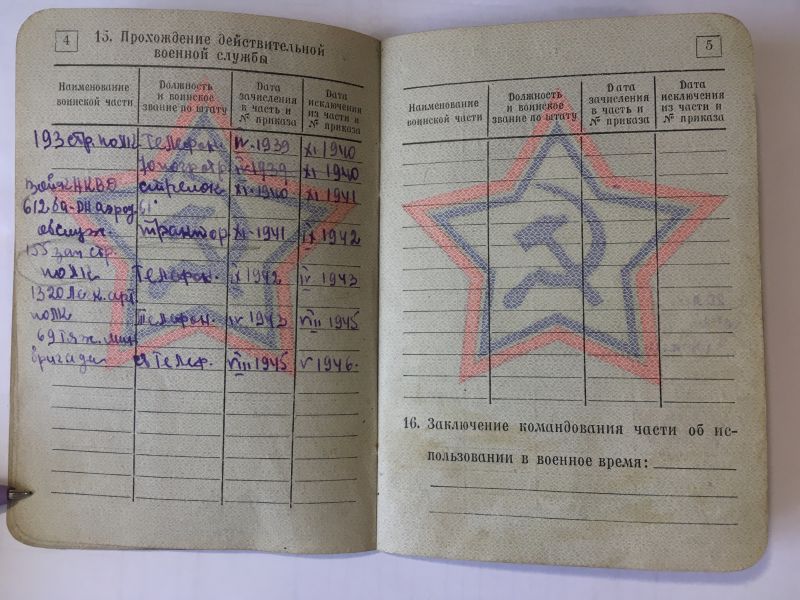 4
15. Прохождение действительной
военной службы
Наименование воинской части
Должность и воинское звание по штату
Дата зачисления в часть и № приказа
Дата исключения из части и № приказа
193 стр. полк телефон. IV. 1939 XI 1940
1939 XI 1940
войск НКВД стрелок XI 1940 XI 1941
612 ба-он аэрод.
обслуж трактор XI 1941 IX 1942
155 зап стр.
полк телефон. IX 1942 IV 1943
1320 арт
полк телефон. IV 1943 VIII 1945
69 тяж. мин
бригада телеф. VIII 1945 V 1946.
5
Наименование воинской части
Должность и воинское звание по штату
Дата зачисления в часть и № приказа
Дата исключения из части и № приказа
16. Заключение командования части об ис-
пользовании в военное время: